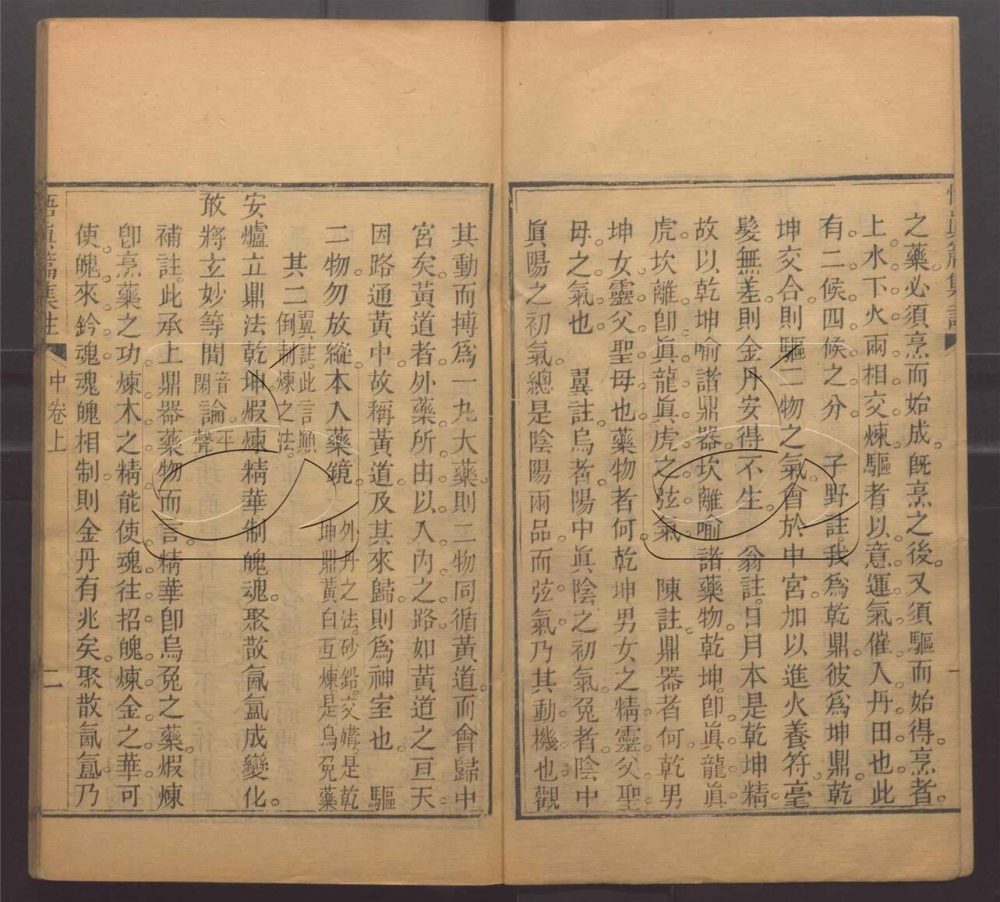 之藥必須烹而始成既烹之後又須驅而始得烹者
上水下火兩相交煉驅者以意運氣催入丹田也此
有二候四候之分　子野註我爲乾鼎彼爲坤鼎乾
坤交合則驅二物之氣會於中宮加以進火養符毫
髮無差則金丹安得不生　翁註日月本是乾坤精
故以乾坤喻諸鼎器坎離喻諸藥物乾坤卽眞龍眞
虎坎離卽眞龍眞虎之弦氣　陳註鼎器者何乾男
坤女靈父聖母也藥物者何乾坤男女之精靈父聖
母之氣也　翼註烏者陽中眞陰之初氣兔者陰中
眞陽之初氣總是陰陽兩品而弦氣乃其動機也觀
其動而摶爲一九大藥則二物同循黃道而會歸中
宮矣黃道者外藥所由以入內之路如黃道之亘天
因路通黃中故稱黃道及其來歸則爲神室也　驅
二物勿放縱本人藥鏡　外丹之法砂鉛交媾是乾
坤鼎黃白互煉是烏兔藥
其二　翼註此言顚
倒制煉之法
安爐立鼎法乾坤煆煉精華制魄魂聚散氤氳成變化
敢將玄妙等閒論　音平
閑　聲
補註此承上鼎器藥物而言精華卽烏兔之藥煆煉
卽烹藥之功煉木之精能使魂往招魄煉金之華可
使魄來鈐魂魂魄相制則金丹有兆矣聚散氤氳乃
悟眞篇集註
中卷上
二